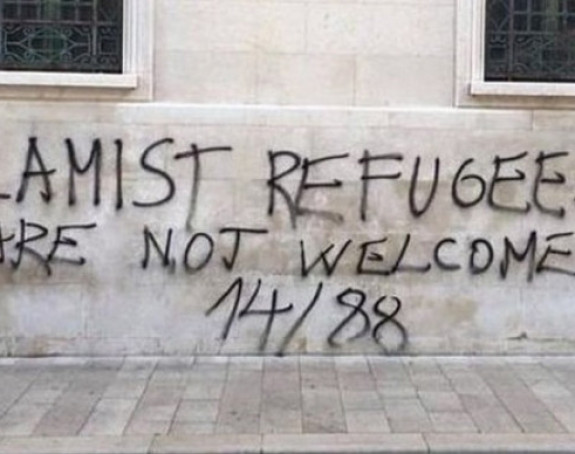 LAMIST REFUGEE
ARE NOT WELCOME
14/88